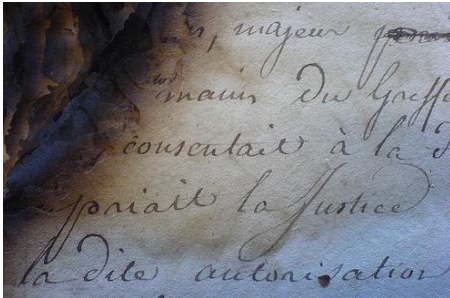 , majeur
mains du Greff
consentait à la
priait la Justice
la dite autorisation